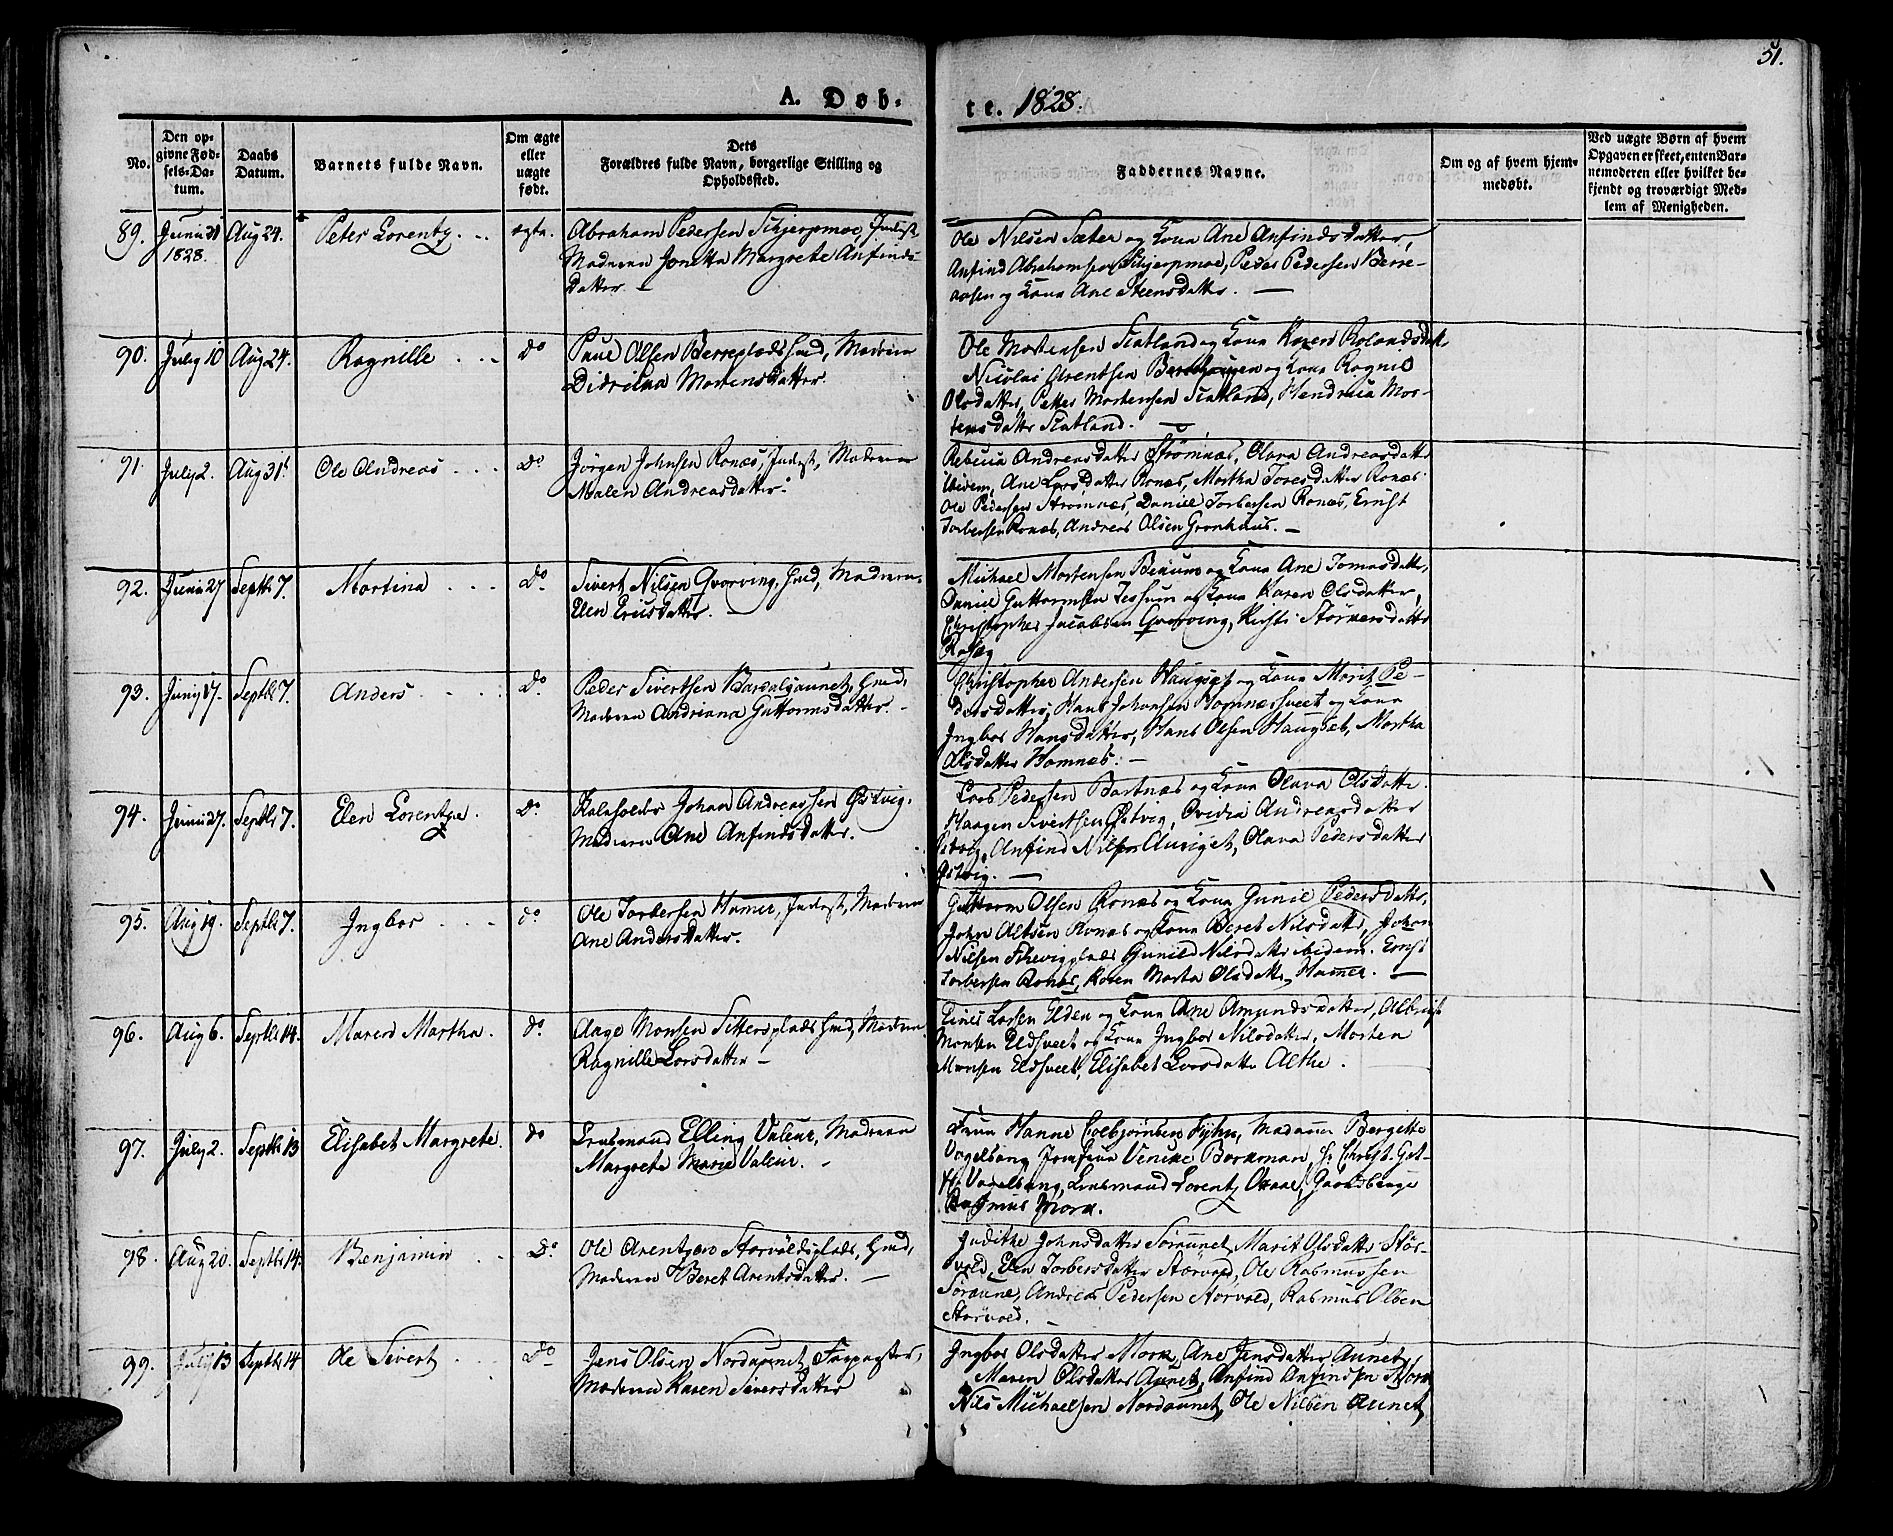 51.
A. Døb-
te. 1828.
No.
Den op-
givne Fød-
sels-Da-
tum.
Daabs
Datum.
Barnets fulde Navn.
Om ægte
eller
uægte
født.
Dets
Forældres fulde Navn, borgerlige Stilling og
Opholdssted.
Faddernes Navne.
Om og af hvem hjem-
medøbt.
Ved uægte Børn af hvem
Opgaven er skeet, enten Bar-
nemoderen eller hvilket be-
kjendt og troværdigt Med-
lem af Menigheden.
89. Junii 21 1828. Aug 24. Peter Lorentz. ægte.
Abraham Pedersen Schjerpmoe, Inderst,
Moderen Jonetta Margrete Anfinds-
datter. —
Ole Nilsen Sæter og Kona Ane Anfindsdatter,
Anfind Abrahamsen Schjerpmoe, Peder Pedersen Berre-
aasen og Kona Ane Steensdatter. —
90. July 10 Aug 24. Ragnille Do
Paul Olsen Berreplads Huusmd, Moderen
Didrikka Mortensdatter.
Ole Mortensen Skatland og Kona Karen Rolandsdatt
Nicolai Arentsen og Kona Ragnil
Olsdatter, Petter Mortensen Skatland, Hendricca Mor-
tensdatter Skatland.
91. July 2. Aug 31t Ole Andreas Do
Jørgen Johnsen Ronæs, Inderst, Moderen
Malen Andreasdatter.
Rebecca Andreasdatter Strømnæs, Olava Andreasdatter
ibidem, Ane Larsdatter Ronæs, Martha Toresdatter Ronæs
Ole Pedersen Strømnæs, Daniel Torbersen Ronæs, Ernst
Torbersen Ronæs, Andreas Olsen Grønhaug. —
92. Junii 27 Septbr 7. Martina Do
Sivert Nilsen Qvarving, Huusmd, Moderen
Elen Ericsdatter.
Michael Mortensen og Kona Ane Tomasdatter,
Daniel Guttormsen Jessum og Kona Karen Olsdatter,
Christopher Jacobsen Qvarving, Kirsti Størkersdatter
93. Junii 17. Septbr 7. Anders Do
Peder Sivertsen Bardalsaunet, Huusmd,
Moderen Andriana Guttormsdatter. -
Christopher Andersen Haugset og Kona Marit Pe-
dersdatter, Hans Johansen Homnæssveet og Kona
Ingbor Hansdatter, Hans Olsen Haugset, Martha
Olsdatter Homnæs. —
94. Junii 27. Septbr 7. Elen Lorentze. Do
Johan Andreassen Østvig,
Moderen Ane Anfindsdatter.
Lars Pedersen Bartnæs og Kona Olava Olsdatter
Haagen Sivertsen Østvig, Ovidia Andreasdatter
Østvig, Anfind Nilsen, Olava Pedersdatter
Østvig. —
95. Aug 19. Septbr 7. Ingbor Do
Ole Torbersen Hamer, Inderst, Moderen
Ane Andersdatter.
Guttorm Olsen Ronæs og Kona Gunil Pedersdatter,
John Altsen Ronæs og Kona Beret Nilsdatter, Johan
Nilsen Skevigplads Gunild Nilsdatter ibidem. Ernst
Torbersen Ronæs, Karen Marta Olsdatter Hamer. —
96. Aug 6. Septbr 14. Maren Martha. Do
Aage Monsen Settersplads Huusmd, Moderen
Ragnille Larsdatter —
Larsen Elden og Kona Ane Amundsdatter, Albrigt
Monsen Eldsveet og Kona Ingbor Nilsdatter, Morten
Monsen Eldsveet, Elisabet Larsdatter Althe.
97. July 2. Septbr 13 Elisabet Margrete. Do
Lensmand Elling Valeur, Moderen
Margrete Marie Valeur. -
Frue Hanne Colbjørnsen Hyhn, Madame Bergitte
Vogelsang, Jomfrue Venike Borkman, Hr Christ. Got-
fr. Vogelsang, Lensmand Lorentz, Gaardsbruger
Rasmus Mork.
98. Aug 20. Septbr 14. Benjamin Do
Ole Arentzen Storvoldsplads, Huusmd,
Moderen Beret Arentsdatter. —
Judithe Johnsdatter Søraunet, Marit Olsdatter Stør-
vold, Elen Torbersdatter Størvold, Ole Rasmussen
Søraune, Andreas Pedersen Størvold, Rasmus Olsen
Størvold. —
99. July 13 Septbr 14 Ole Sivert Do
Jens Olsen Nordaunet, Forpagter,
Moderen Karen Siversdatter
Ingbor Olsdatter Mork, Ane Jensdatter Aunet,
Maren Olsdatter Aunet, Anfind Anfindsen
Nils Michaelsen Nordaunet, Ole Nilsen Aunet,